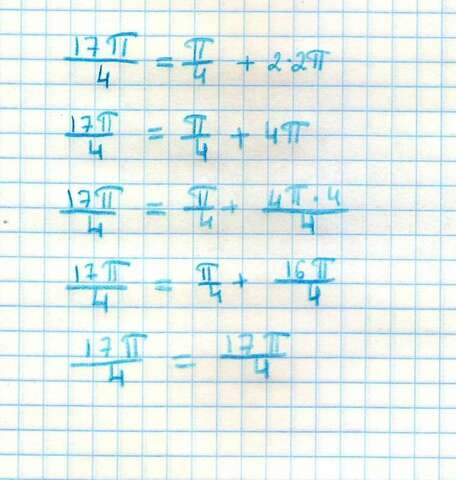 17π/4 = π/4 + 2·2π
17π/4 = π/4 + 4π
17π/4 = π/4 + 4π·4/4
17π/4 = π/4 + 16π/4
17π/4 = 17π/4